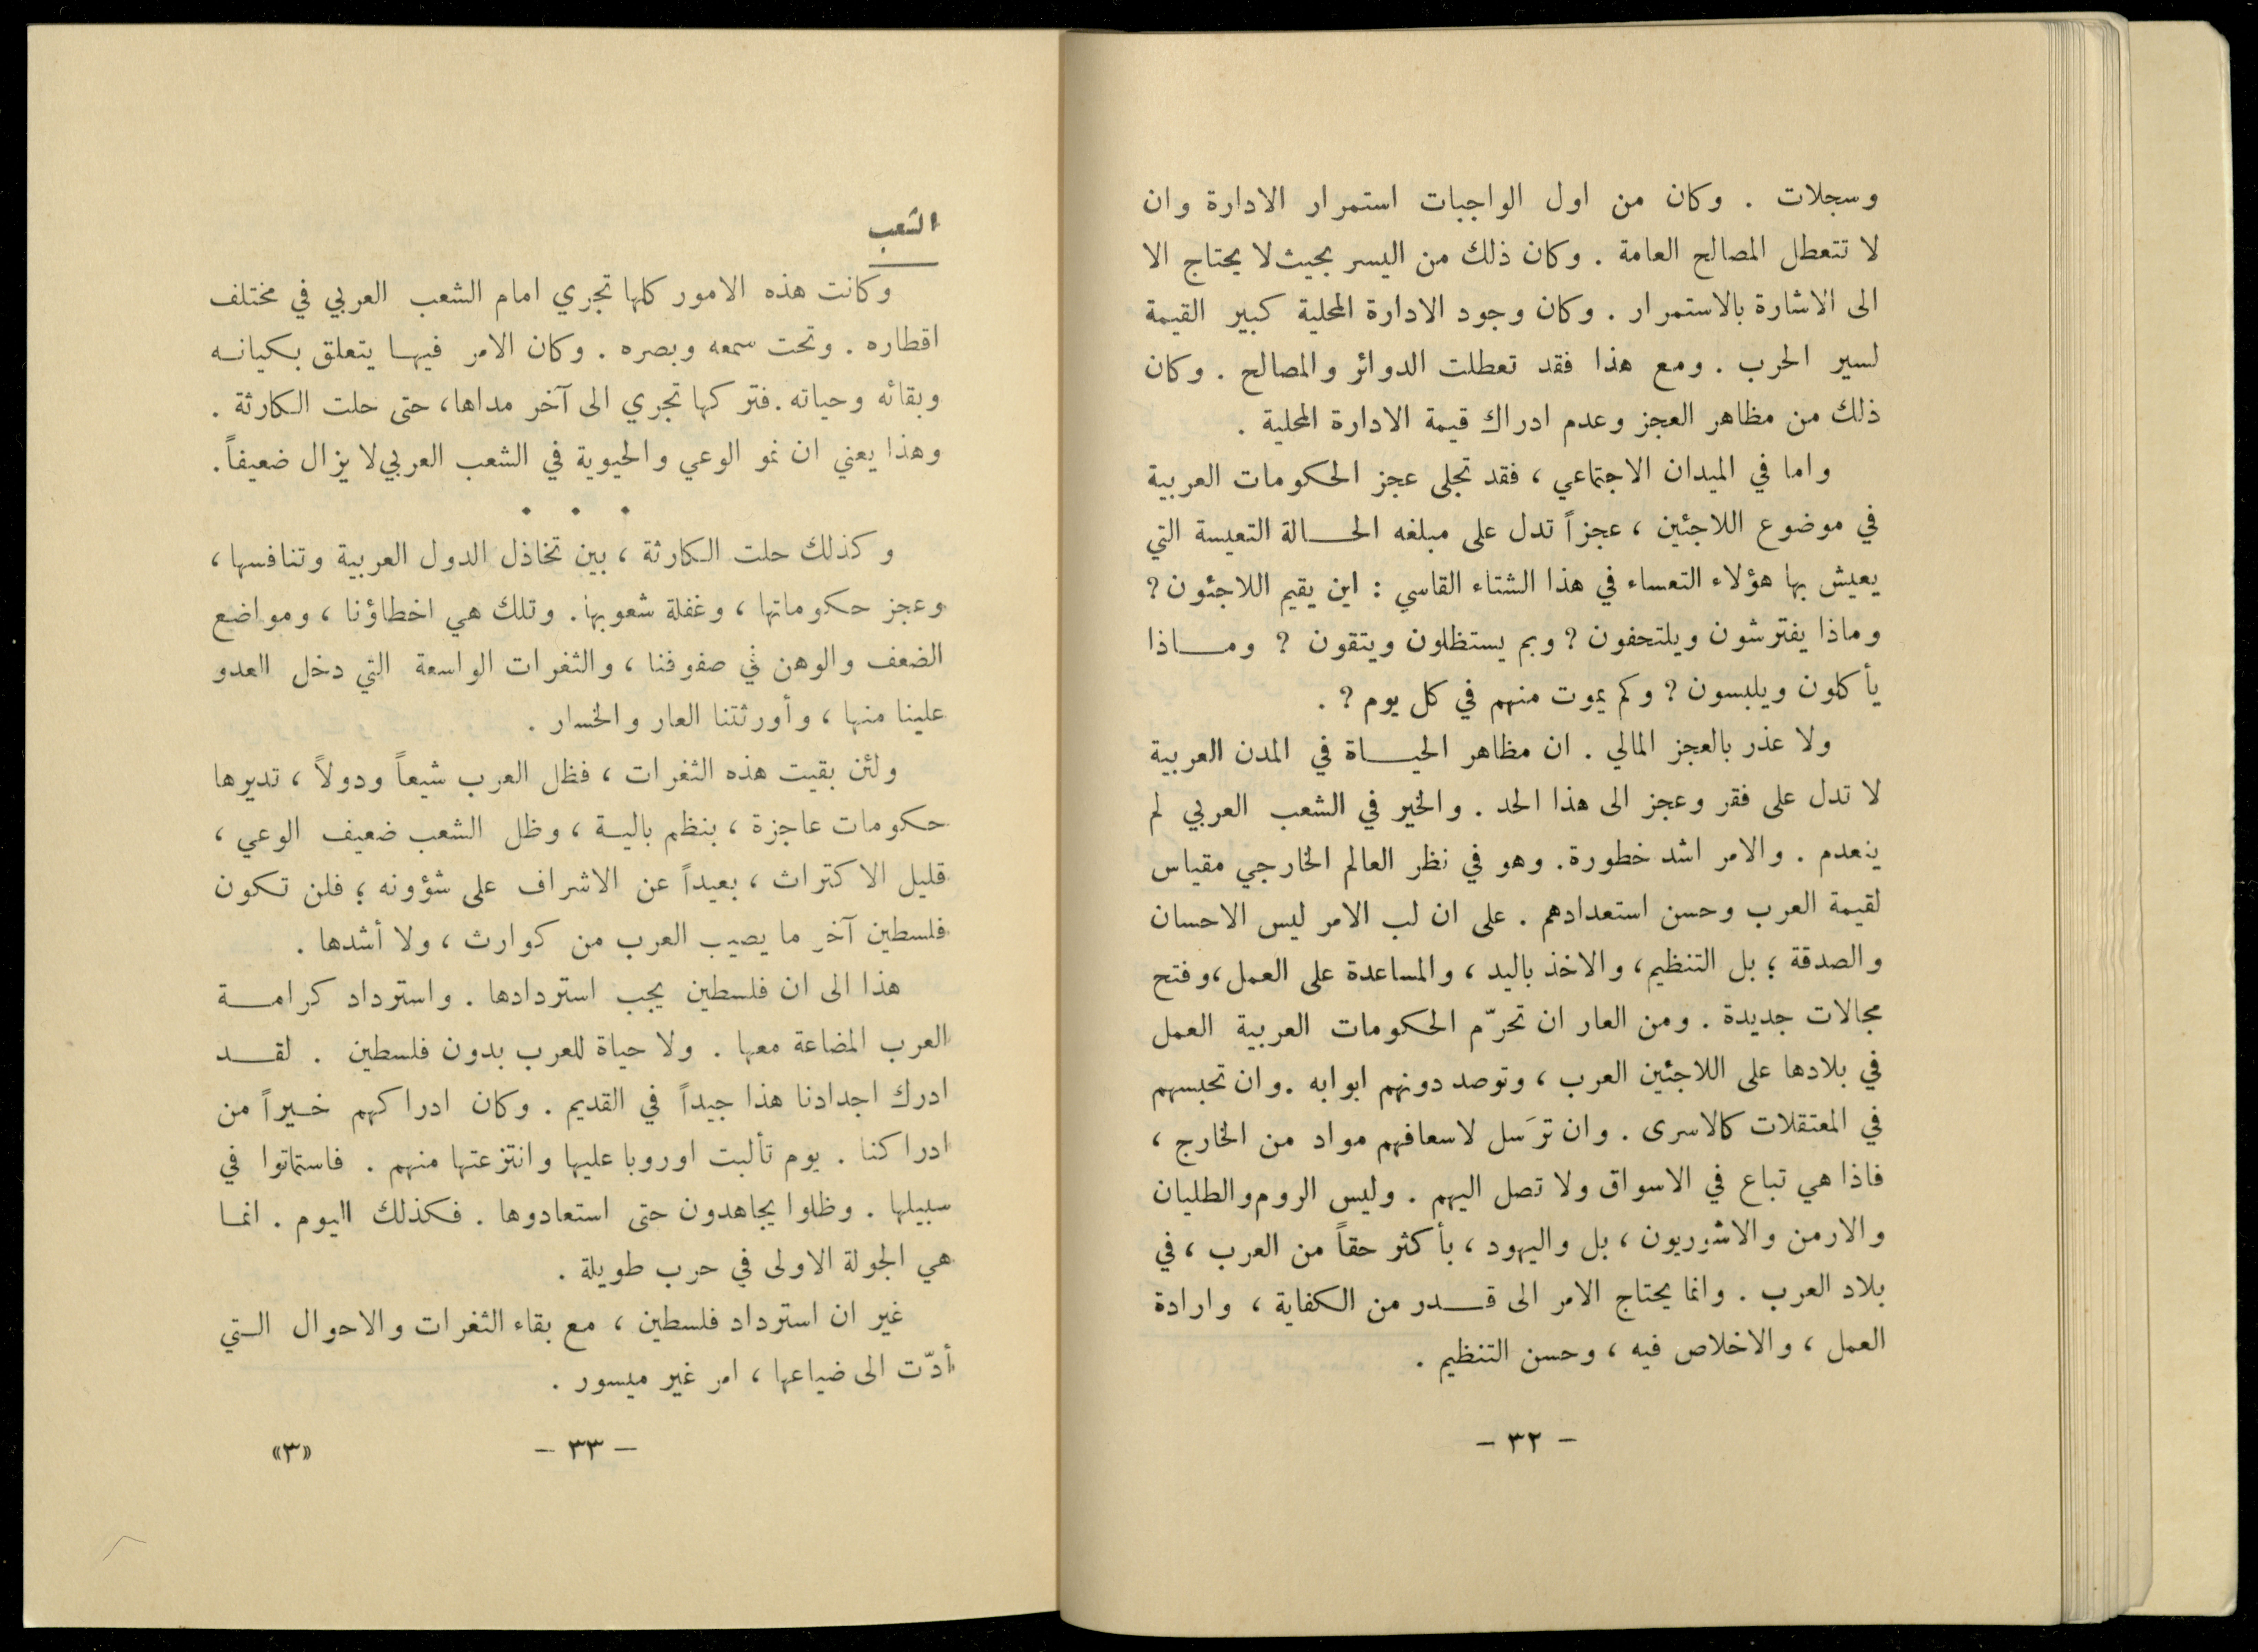 وسجلات . وكان من اول الواجبات استمرار الادارة وان
لا تتعطل المصالح العامة . وكان ذلك من اليسر بحيث لا يحتاج الا
الى الاشارة بالاستمرار . وكان وجود الادارة المحلية كبير القيمة
لسير الحرب . ومع هذا فقد تعطلت الدوائر والمصالح . وكان
ذلك من مظاهر العجز وعدم ادراك قيمة الادارة المحلية .
واما في الميدان الاجتماعي ، فقد تجلى عجز الحكومات العربية
في موضوع اللاجئين ، عجزاً تدل على مبلغه الحـالة التعيسة التي
يعيش بها هؤلاء التعساء في هذا الشتاء القاسي : اين يقيم اللاجئون ?
وماذا يفترشون ويلتحفون ? وبم يستظلون ويتقون ? ومـاذا
يأكلون ويلبسون ? وكم يموت منهم في كل يوم ? .
ولا عذر بالعجز المالي . ان مظاهر الحيـاة في المدن العربية
لا تدل على فقر وعجز الى هذا الحد . والخير في الشعب العربي لم
ينعدم . والامر اشد خطورة . وهو في نظر العالم الخارجي مقياس
لقيمة العرب وحسن استعدادهم . على ان لب الامر ليس الاحسان
والصدقة ؛ بل التنظيم ، والاخذ باليد ، والمساعدة على العمل ، وفتح
مجالات جديدة . ومن العار ان تحرّم الحكومات العربية العمل
في بلادها على اللاجئين العرب ، وتوصد دونهم ابوابه . وان تحبسهم
في المعتقلات كالاسرى . وان ترَسل لاسعافهم مواد من الخارج ،
فاذا هي تباع في الاسواق ولا تصل اليهم . وليس الروم والطليان
والارمن والاشوريون ، بل واليهود ، بأكثر حقاً من العرب ، في
بلاد العرب . وانما يحتاج الامر الى قـدر من الكفاية ، وارادة
العمل ، والاخلاص فيه ، وحسن التنظيم .
– ٣٢ –
الشعب
وكانت هذه الامور كلها تجري امام الشعب العربي في مختلف
اقطاره . وتحت سمعه وبصره . وكان الامر فيهـا يتعلق بـكيانـه
وبقائه وحياته . فتركها تجري الى آخر مداها ، حتى حلت الـكارثة .
وهذا يعني ان نمو الوعي والحيوية في الشعب العربي لا يزال ضعيفاً .
• • •
وكذلك حلت الـكارثة ، بين تخاذل الدول العربية وتنافسها ،
وعجز حكوماتها ، وغفلة شعوبها . وتلك هي اخطاؤنا ، ومواضع
الضعف والوهن في صفوفنا ، والثغرات الواسعة التي دخل العدو
علينا منها ، وأورثتنا العار والخسار .
ولئن بقيت هذه الثغرات ، فظل العرب شيعاً ودولاً ، تديرها
حكومات عاجزة ، بنظم باليـة ، وظل الشعب ضعيف الوعي ،
قليل الاكتراث ، بعيداً عن الاشراف على شؤونه ؛ فلن تـكون
فلسطين آخر ما يصيب العرب من كوارث ، ولا أشدها .
هذا الى ان فلسطين يجب استردادها . واسترداد كرامـة
العرب المضاعة معها . ولا حياة للعرب بدون فلسطين . لقـد
ادرك اجدادنا هذا جيداً في القديم . وكان ادراكهم خـيراً من
ادراكنا . يوم تألبت اوروبا عليها وانتزعتها منهم . فاستماتوا في
سبيلها . وظلوا يجاهدون حتى استعادوها . فـكذلك اليوم . انمـا
هي الجولة الاولى في حرب طويلة .
غير ان استرداد فلسطين ، مع بقاء الثغرات والاحوال الـتي
أدّت الى ضياعها ، امر غير ميسور .
– ٣٣ – «٣»